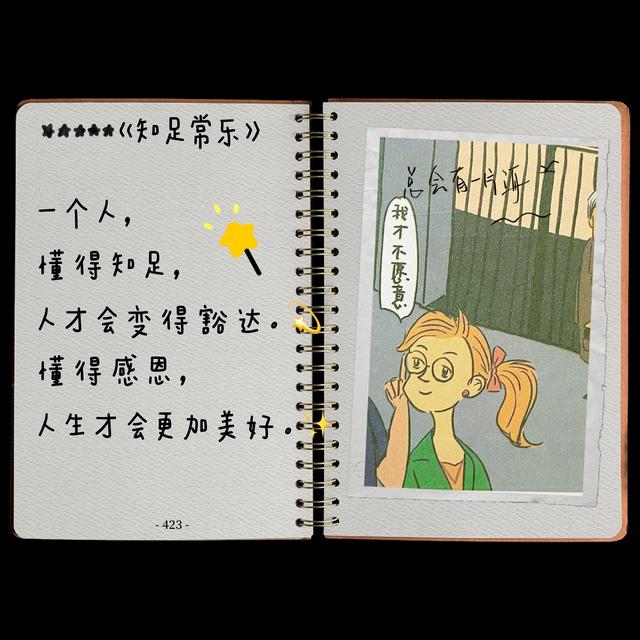 ★★★★★《知足常乐》
一个人，
懂得知足，
人才会变得豁达。
懂得感恩，
人生才会更加美好。
- 423 -
总会有一片海
我才不愿意